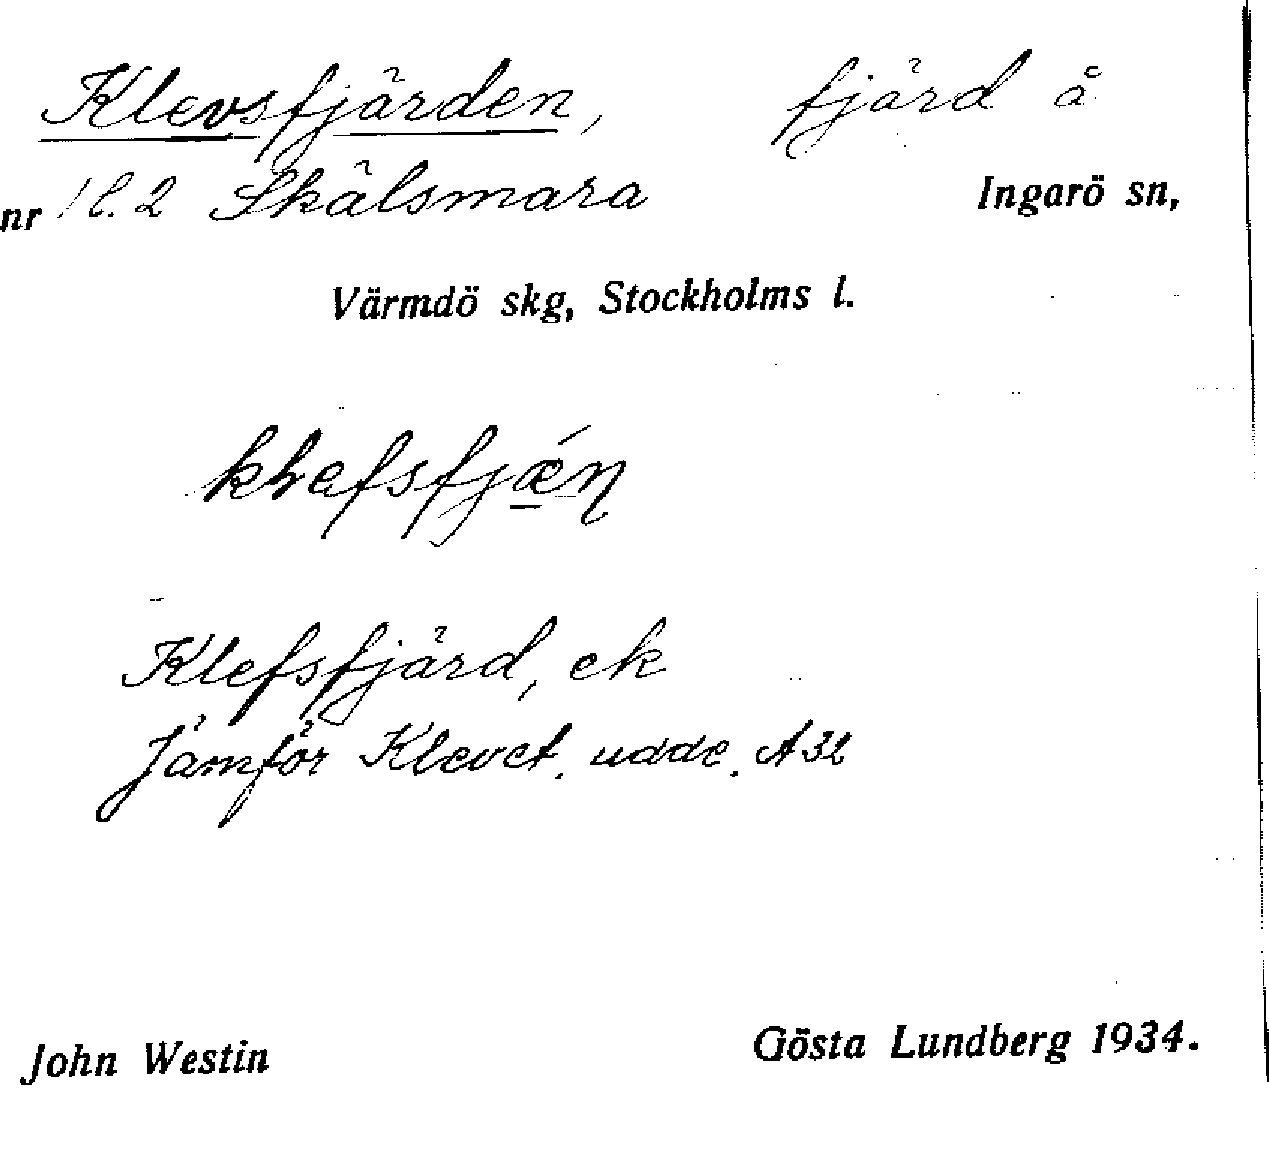 Klevsfjärden, fjärd å
nr 18.2 Skälsmara Ingarö sn,
Värmdö skg, Stockholms l.
Klefsfjärd, ek
Jämför Klevet, udde, A32
John Westin Gösta Lundberg 1934.